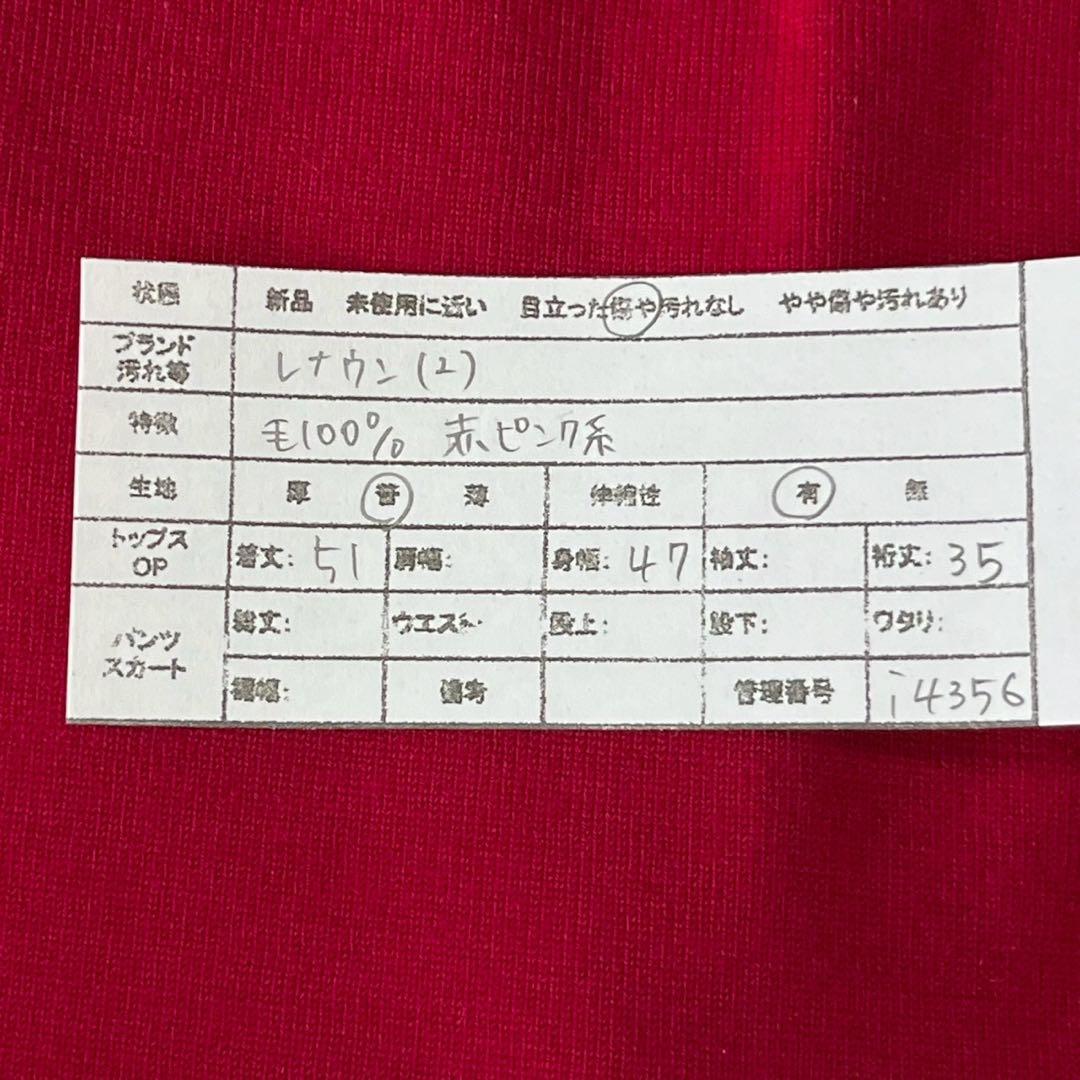 状態 新品 未使用に近い 目立った傷や汚れなし やや傷や汚れあり
ブランド
汚れ等 レナウン(2)
特徴 毛100% 赤、ピンク系
生地 厚 普 薄 伸縮性 有 無
トップス
OP 着丈: 51 肩幅: 身幅: 47 袖丈: 裄丈: 35
パンツ
スカート 総丈: ウエスト: 股上: 股下: ワタリ:
裾幅: 備考 管理番号 i4356